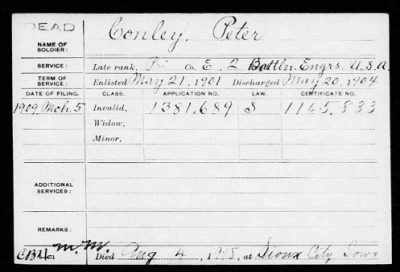 DEAD
NAME OF SOLDIER: Conley, Peter
SERVICE: Late rank, Pri Co. E, 2 Battln. Engrs. U.S.A.
TERM OF SERVICE: Enlisted May 21, 1901 Discharged May 20, 1904
DATE OF FILING. CLASS. APPLICATION NO. LAW. CERTIFICATE NO.
1909, Mch. 5 Invalid, 1381,689 S 1165,833
Widow,
Minor,
ADDITIONAL SERVICES:
REMARKS:
M.M. Died Aug 4, 1918, at Sioux City, Iowa